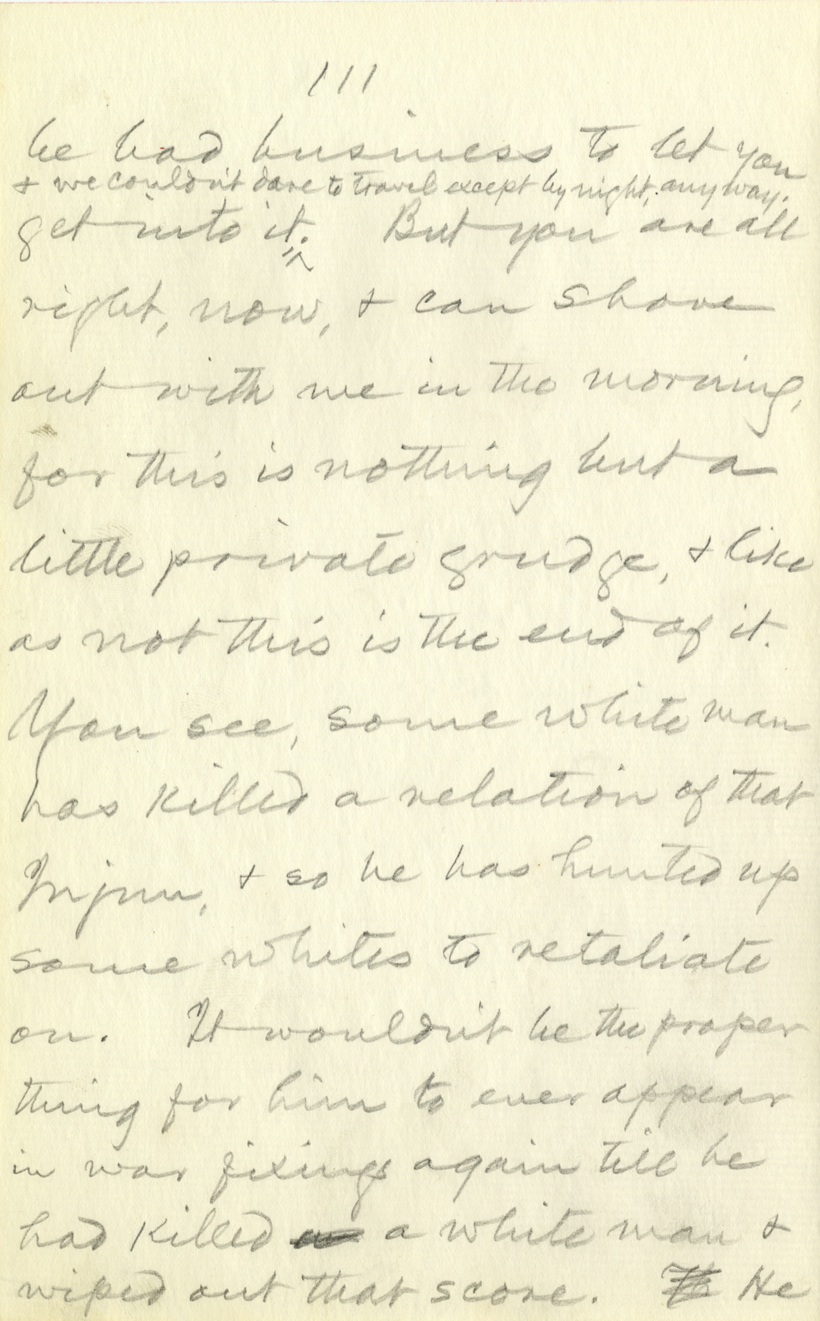 111
be bad business to let you
& we couldn't dare to travel except by night, anyway.
get into it. But you are all
right, now, & can shove
out with me in the morning,
for this is nothing but a
little private grudge, & like
as not this is the end of it.
You see, some white man
has killed a relation of that
Injun, & so he has hunted up
some whites to retaliate
on. It wouldn't be the proper
thing for him to ever appear
in war fixings again till he
had killed a white man &
wiped out that score. He